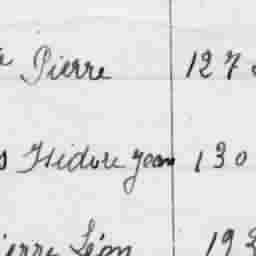 Pierre 127
Isidore Jean 130
ierre Léon 193